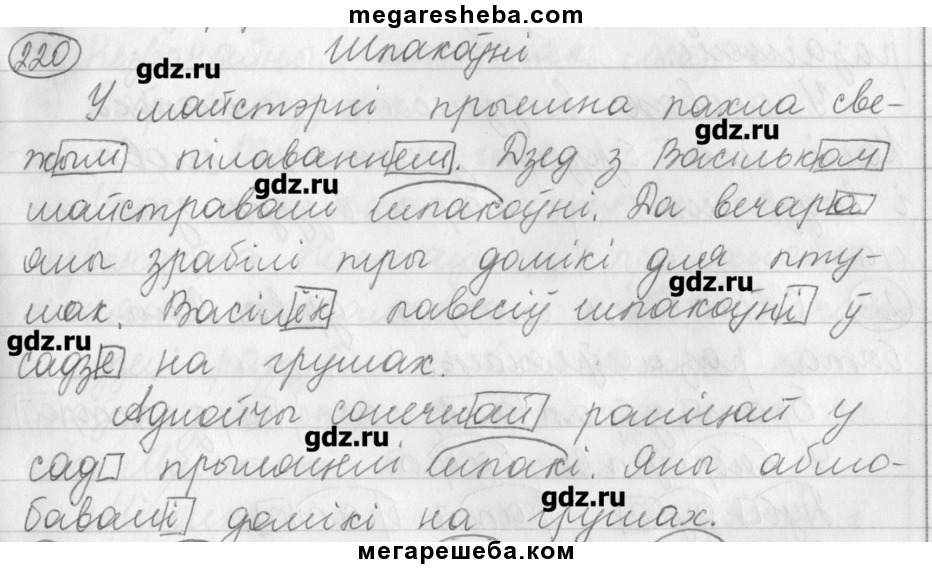 megaresheba.com
220 Шпакоўні
gdz.ru
У майстэрні прыемна пахла све-
gdz.ru
жым пілаваннем. Дзед з Васільком
gdz.ru
майстравалі шпакоўні. Да вечара
яны зрабілі тры домікі для пту-
gdz.ru
шак. Васілёк павесіў шпакоўні ў
gdz.ru
садзе на грушах.
Аднойчы сонечнай раніцай у
gdz.ru
сад прыляцелі шпакі. Яны абло-
gdz.ru
бавалі домікі на грушах.
мегарешеба.com